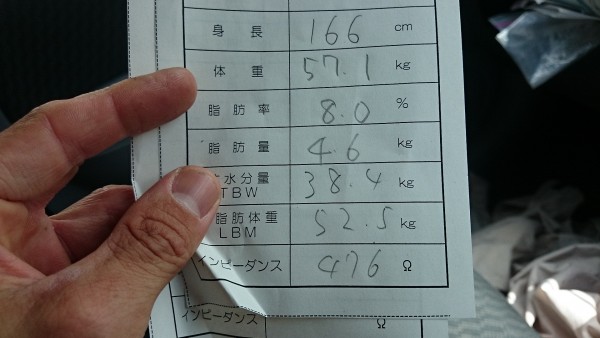 身長 166 cm
体重 57.1 kg
脂肪率 8.0 %
脂肪量 4.6 kg
水分量 38.4 kg
TBW
脂肪体重 52.5 kg
LBM
インピーダンス 476 Ω
インピーダンス Ω